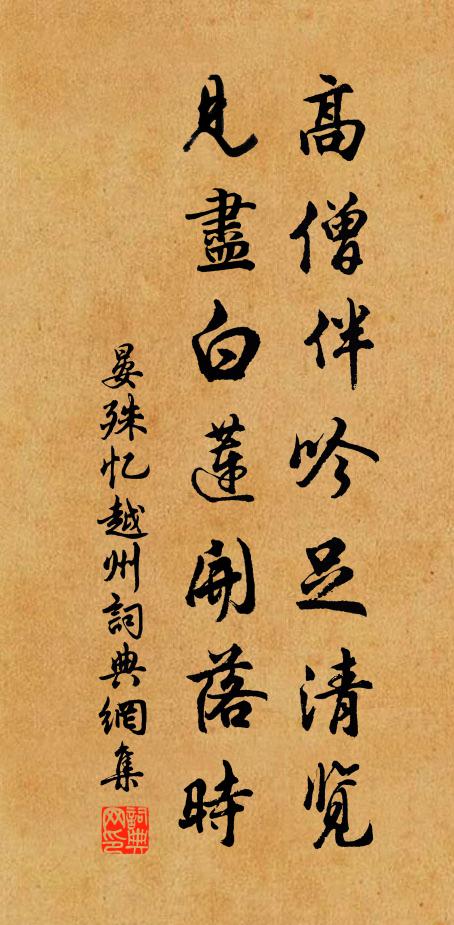 高僧伴吟足清览
見盡白蓮開落時
晏殊忆越州詞典網集
詞典网印